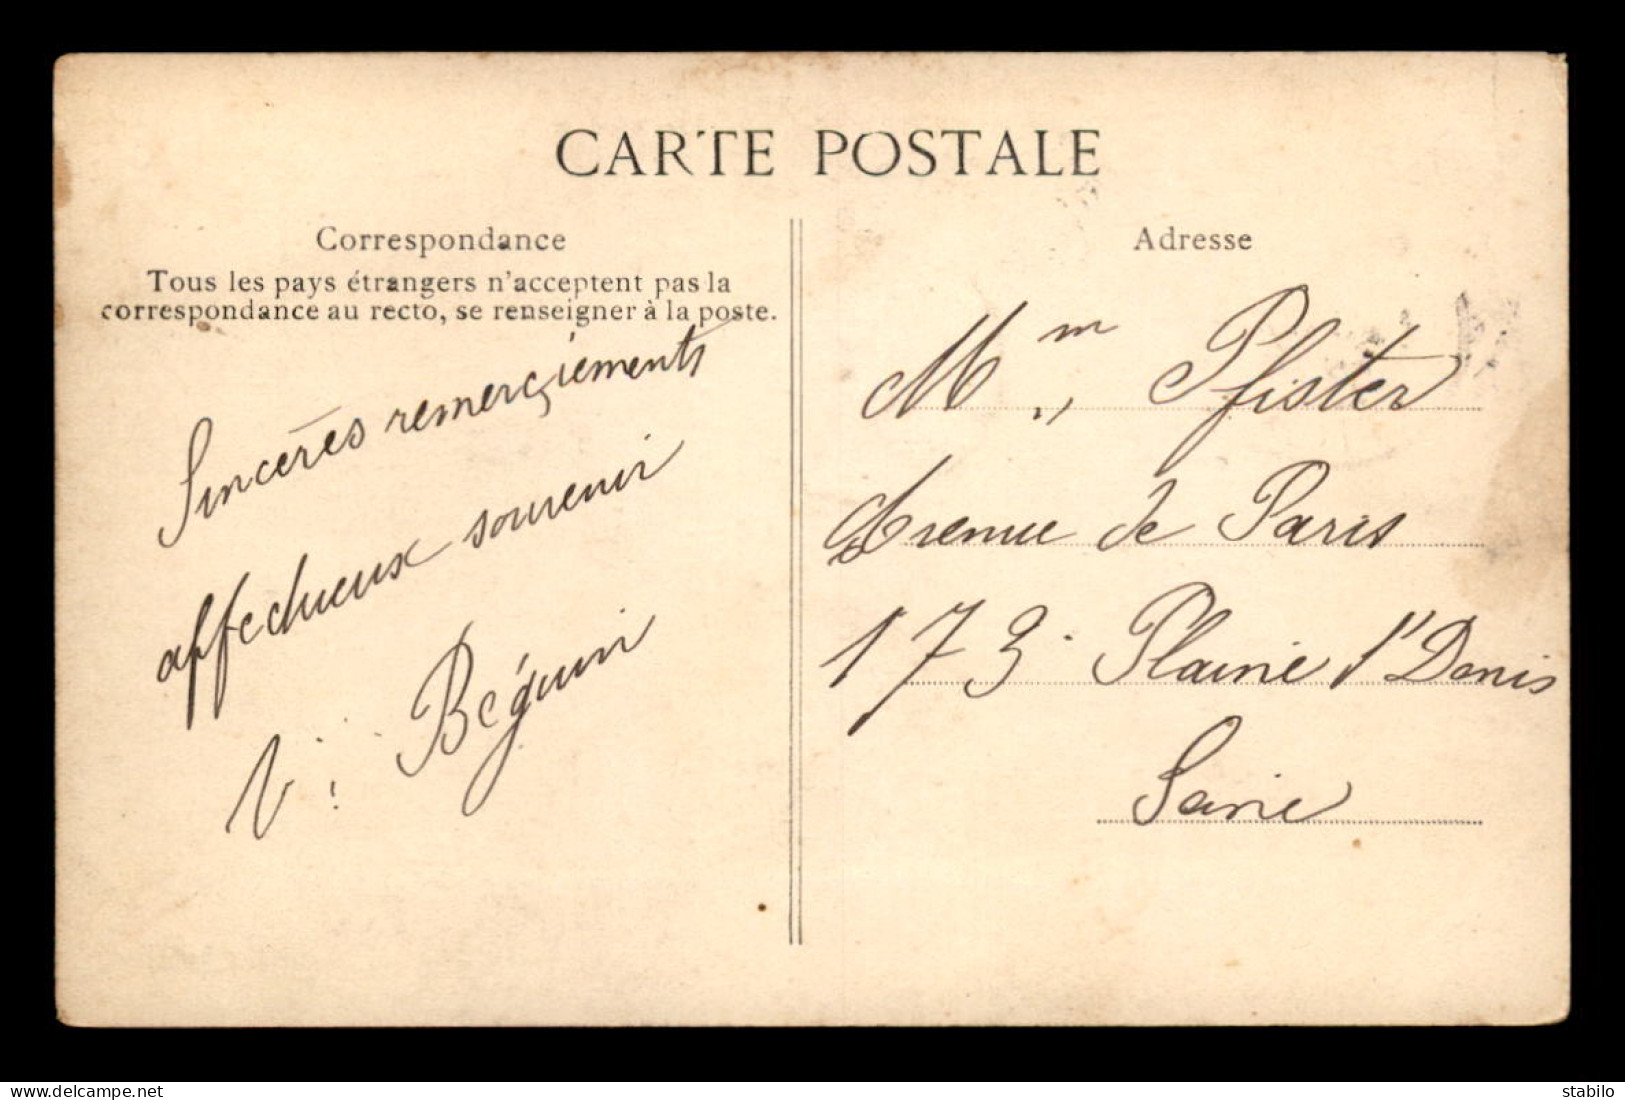 CARTE POSTALE
Correspondance
Tous les pays étrangers n'acceptent pas la
correspondance au recto, se renseigner à la poste.
Sincères remerçiements
affectueux souvenir
V. Béguin
Adresse
Mm Pfister
Avenue de Paris
173 Plaine St Denis
Seine
the-stamp-collector
stabilo